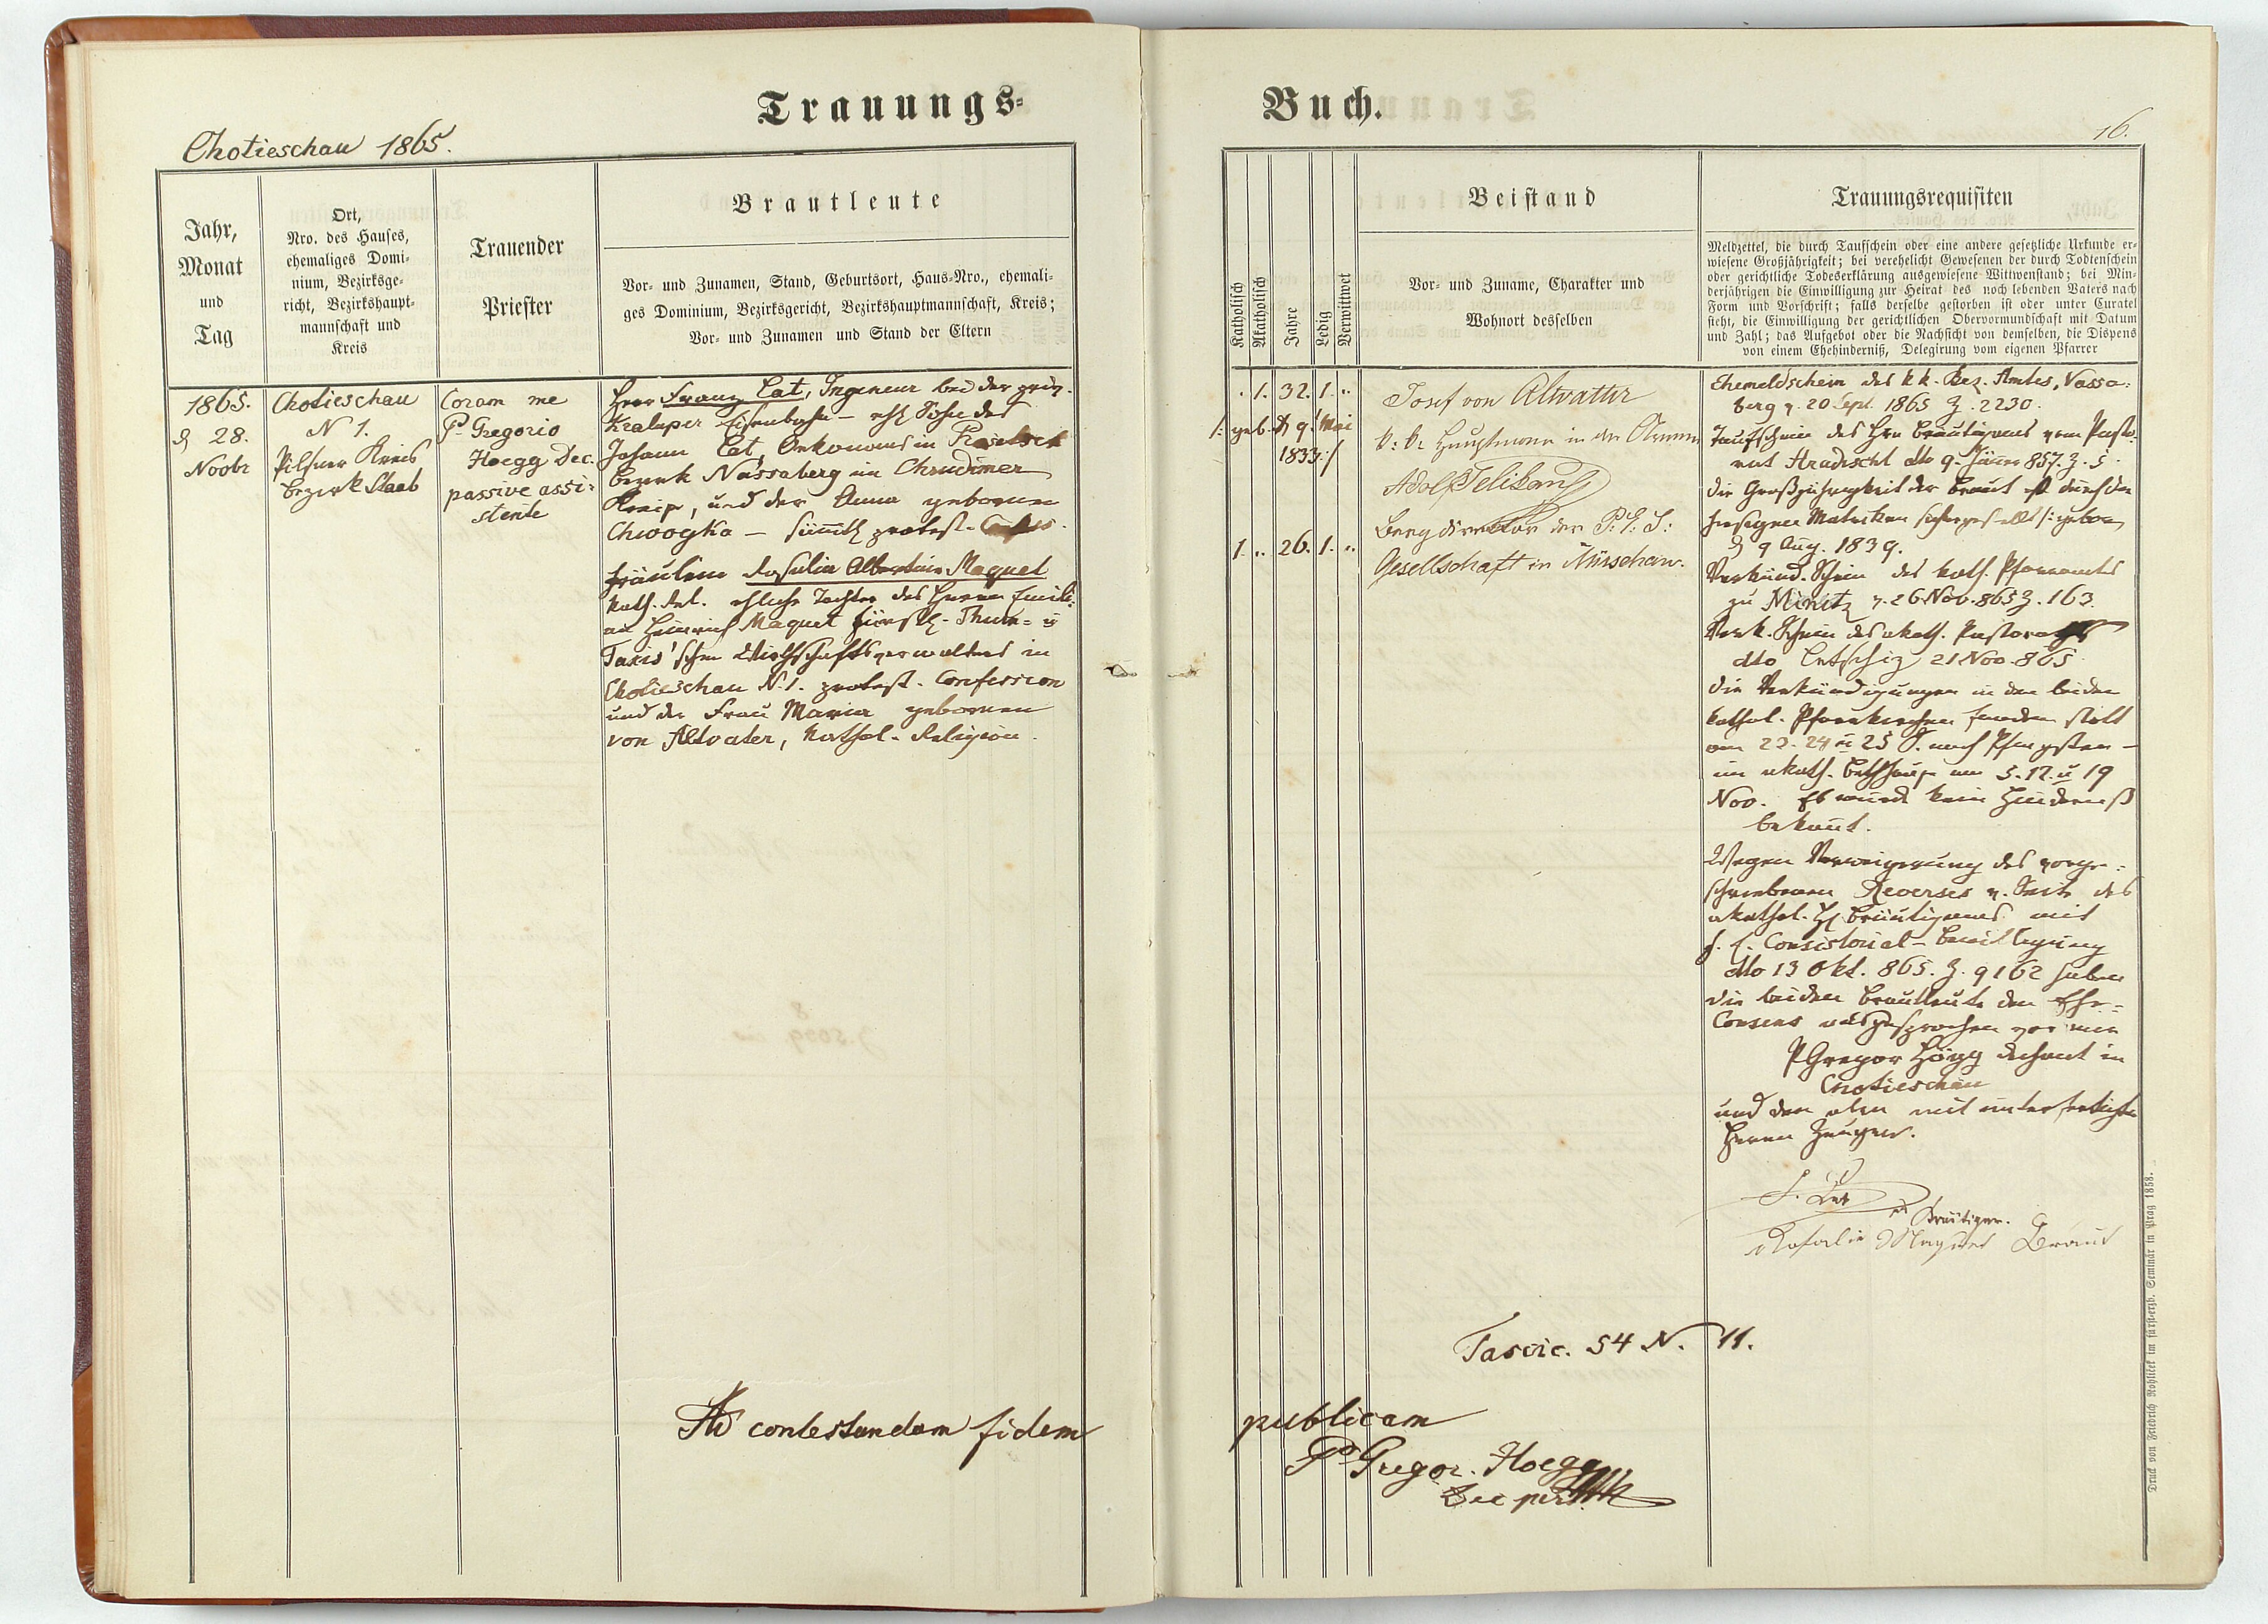 Trauungs-
Buch.
Chotieschau 1865.
16.
Jahr,
Monat
und
Tag
Ort,
Nro. des Hauses,
ehemaliges Domi-
nium, Bezirksge-
richt, Bezirkshaupt-
mannschaft und
Kreis
Trauender
Priester
Brautleute
Vor- und Zunamen, Stand, Geburtsort, Haus-Nro., ehemali-
ges Dominium, Bezirksgericht, Bezirkshauptmannschaft, Kreis;
Vor- und Zunamen und Stand der Eltern
Katholisch
Akatholisch
Jahre
Ledig
Verwittwet
Beistand
Vor- und Zuname, Charakter und
Wohnort desselben
Trauungsrequisiten
Meldzettel, die durch Taufschein oder eine andere gesetzliche Urkunde er-
wiesene Großjährigkeit; bei verehelicht Gewesenen der durch Todtenschein
oder gerichtliche Todeserklärung ausgewiesene Wittwenstand; bei Min-
derjährigen die Einwilligung zur Heirat des noch lebenden Vaters nach
Form und Vorschrift; falls derselbe gestorben ist oder unter Curatel
steht, die Einwilligung der gerichtlichen Obervormundschaft mit Datum
und Zahl; das Aufgebot oder die Nachsicht von demselben, die Dispens
von einem Ehehinderniß, Delegirung vom eigenen Pfarrer
1865.
d 28.
Novbr
Chotieschau
N 1.
Pilsner Kreis
Bezirk Staab
Coram me
P. Gregorio
Hoegg Dec.
passive assi-
stente
Herr Franz Lat, Ingeneur bei der
Kraluper Eisenbahn - ehl Sohn des
Johann Lat, Oekonomes in
Bezirk Nassaberg im Chrudimer
Kreise, und der Anna gebornen
Chwoyka - sämtl protest.
Fräulein Rosalia Albertine Maquet
kath. Rel. ehliche Tochter des Herrn Emili-
an Heinrich Maquet fürstl. Thurn- u
Taxis'schen Wirthschaftsverwalters in
Chotieschau N. 1. protest. Confession
und der Frau Maria gebornen
von Altvater, kathol. Religion.
. 1. 32. 1. "
/: geb. d 9. Mai
1833 :/
1. " 26. 1. "
Josef von Altvatter
k: k: Hauptmann in der Armee
Adolf Pelikan
Bergdirektor der P: I:
Gesellschaft in Nürschan.
Ehemeldschein des k k. Bez. Amtes, Nassa-
berg v. 20 Sept. 1865 Z. 2230.
Taufschein des Hrn Bräutigams vom Pasto-
rat Hradischt dto 9. Jäner 857. Z. 5.
Die Großjährigkeit der Braut ist durch die
hiesigen Matriken sichergestellt /: geboren
d 9 Aug. 1839.
Verkünd. Schein des kath. Pfarramtes
zu Minitz v. 26 Nov. 865 Z. 163.
Verk. Schein des akath. Pastorats
dto Letschiz 21 Nov. 865
Die Verkündigungen in den beiden
kathol. Pfarrkirchen fanden statt
am 23. 24 u 25 S. nach Pfingsten -
im akath. Bethhause am 5. 12. u 19
Nov. Es wurde kein Hinderniß
bekannt.
Wegen Verweigerung des vorge-
schriebenen Reverses v. Seite des
akathol. H. Bräutigams mit
f. e. Consistorial-Bewilligung
dto 13 Okt. 865. Z. 9162 haben
die beiden Brautleute den Ehe-
Consens ausgesprochen vor mir
P Gregor Högg Dechant in
Chotieschau
und den oben mit unterfertigten
Herrn Zeugen.
F. Lat
Bräutigam.
Rosalie Maquet Braut
Fascic. 54 N. 11.
Ad contestandam fidem
publicam
P. Gregor. Hoegg
Druck von Friedrich Rohliček im fürst-erzb. Seminär in Prag 1858.